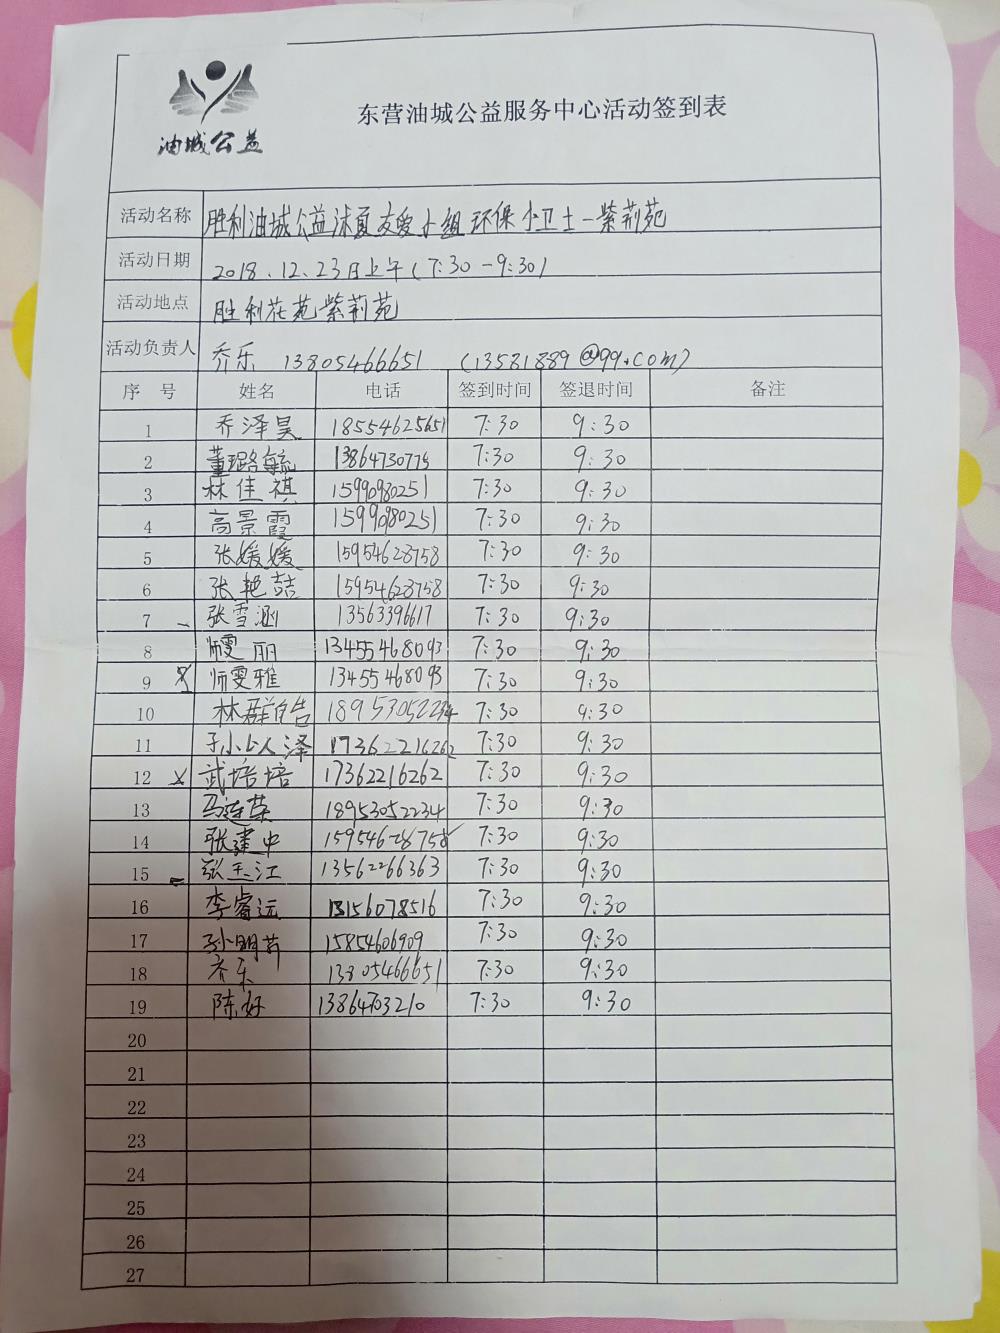 油城公益
东营油城公益服务中心活动签到表
活动名称 胜利油城公益沐夏友爱小组环保小卫士-紫荆苑
活动日期 2018.12.23日上午(7:30-9:30)
活动地点 胜利花苑紫荆苑
活动负责人 乔乐 13805466651 (13581889@qq.com)
序号 姓名 电话 签到时间 签退时间 备注
1 乔泽昊 18554625651 7:30 9:30
2 董璐毓 13864730775 7:30 9:30
3 林佳祺 15990980251 7:30 9:30
4 高景霞 15990980251 7:30 9:30
5 张媛媛 15954628758 7:30 9:30
6 张艳喆 15954628758 7:30 9:30
7 张雪涵 13563396617 7:30 9:30
8 师雯丽 13455468093 7:30 9:30
9 师雯雅 13455468093 7:30 9:30
10 林群皓 18953052234 7:30 9:30
11 17362216262 7:30 9:30
12 武培培 17362216262 7:30 9:30
13 马连荣 18953052234 7:30 9:30
14 张建中 15954628758 7:30 9:30
15 张玉江 13562266363 7:30 9:30
16 李睿远 13156078516 7:30 9:30
17 15854606909 7:30 9:30
18 乔乐 13805466651 7:30 9:30
19 陈好 13864703210 7:30 9:30
20
21
22
23
24
25
26
27